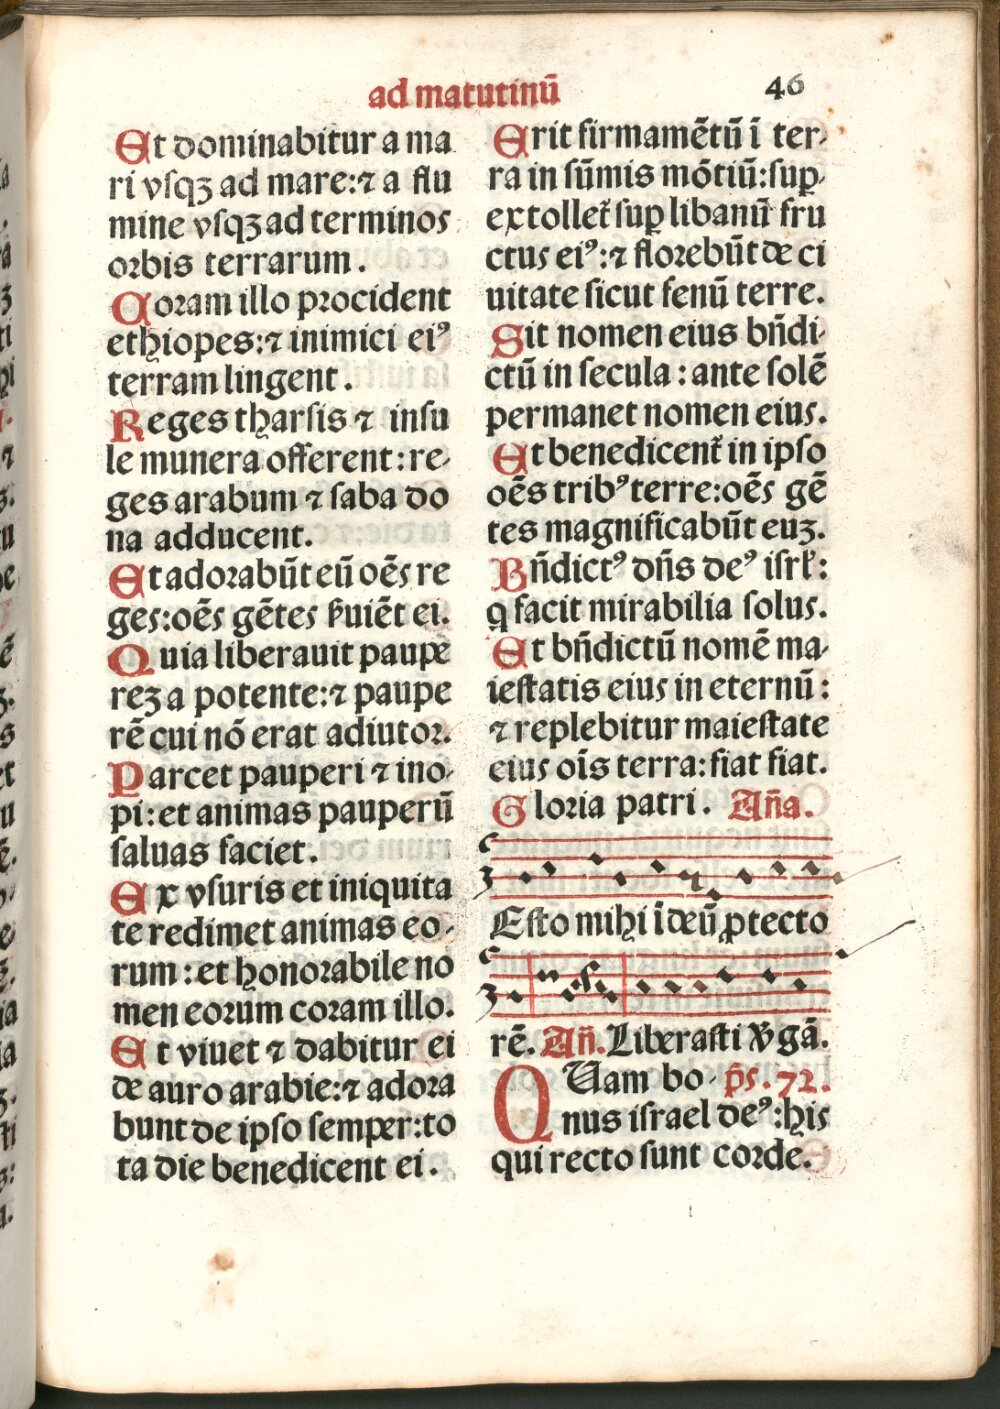 ad matutinū
46
Et dominabitur a ma
ri vſqꝫ ad mare:⁊ a flu
mine vſqꝫ ad terminos
orbis terrarum.
Coram illo procident
ethiopes:⁊ inimici eiꝰ
terram lingent.
Reges tharsis ⁊ inſu
le munera offerent: re-
ges arabum ⁊ ſaba do
na adducent.
Et adorabūt eū oēs re
ges:oēs gētes ẜuiēt ei.
Quia liberauit paupe
reꝫ a potente:⁊ paupe
rē cui nō erat adiutor.
Parcet pauperi ⁊ ino-
pi: et animas pauperū
ſaluas faciet.
Ex vſuris et iniquita
te redimet animas eo-
rum: et honorabile no
men eorum coram illo.
Et viuet ⁊ dabitur ei
de auro arabie:⁊ adora
bunt de ipſo ſemper:to
ta die benedicent ei.
Erit firmamētū ī ter-
ra in ſūmis mōtiū:ſuꝑ-
extollet᷑ ſuꝑ libanū fru
ctus eiꝰ:⁊ florebūt de ci
uitate ſicut fenū terre.
Sit nomen eius bn̄di-
ctū in ſecula: ante ſolē
permanet nomen eius.
Et benedicent᷑ in ipſo
oēs tribꝰ terre:oēs gē
tes magnificabūt euꝫ.
Bn̄dictꝰ dn̄s deꝰ iſrl̓:
q facit mirabilia ſolus.
Et bn̄dictū nomē ma-
ieſtatis eius in eternū:
⁊ replebitur maieſtate
eius oīs terra: fiat fiat.
Gloria patri. An̄a.
Eſto mihi ī deū ꝓtecto
rē. An̄. Liberaſti v̓gā.
QUam bo- p̄s. 72.
nus iſrael deꝰ: his
qui recto ſunt corde.